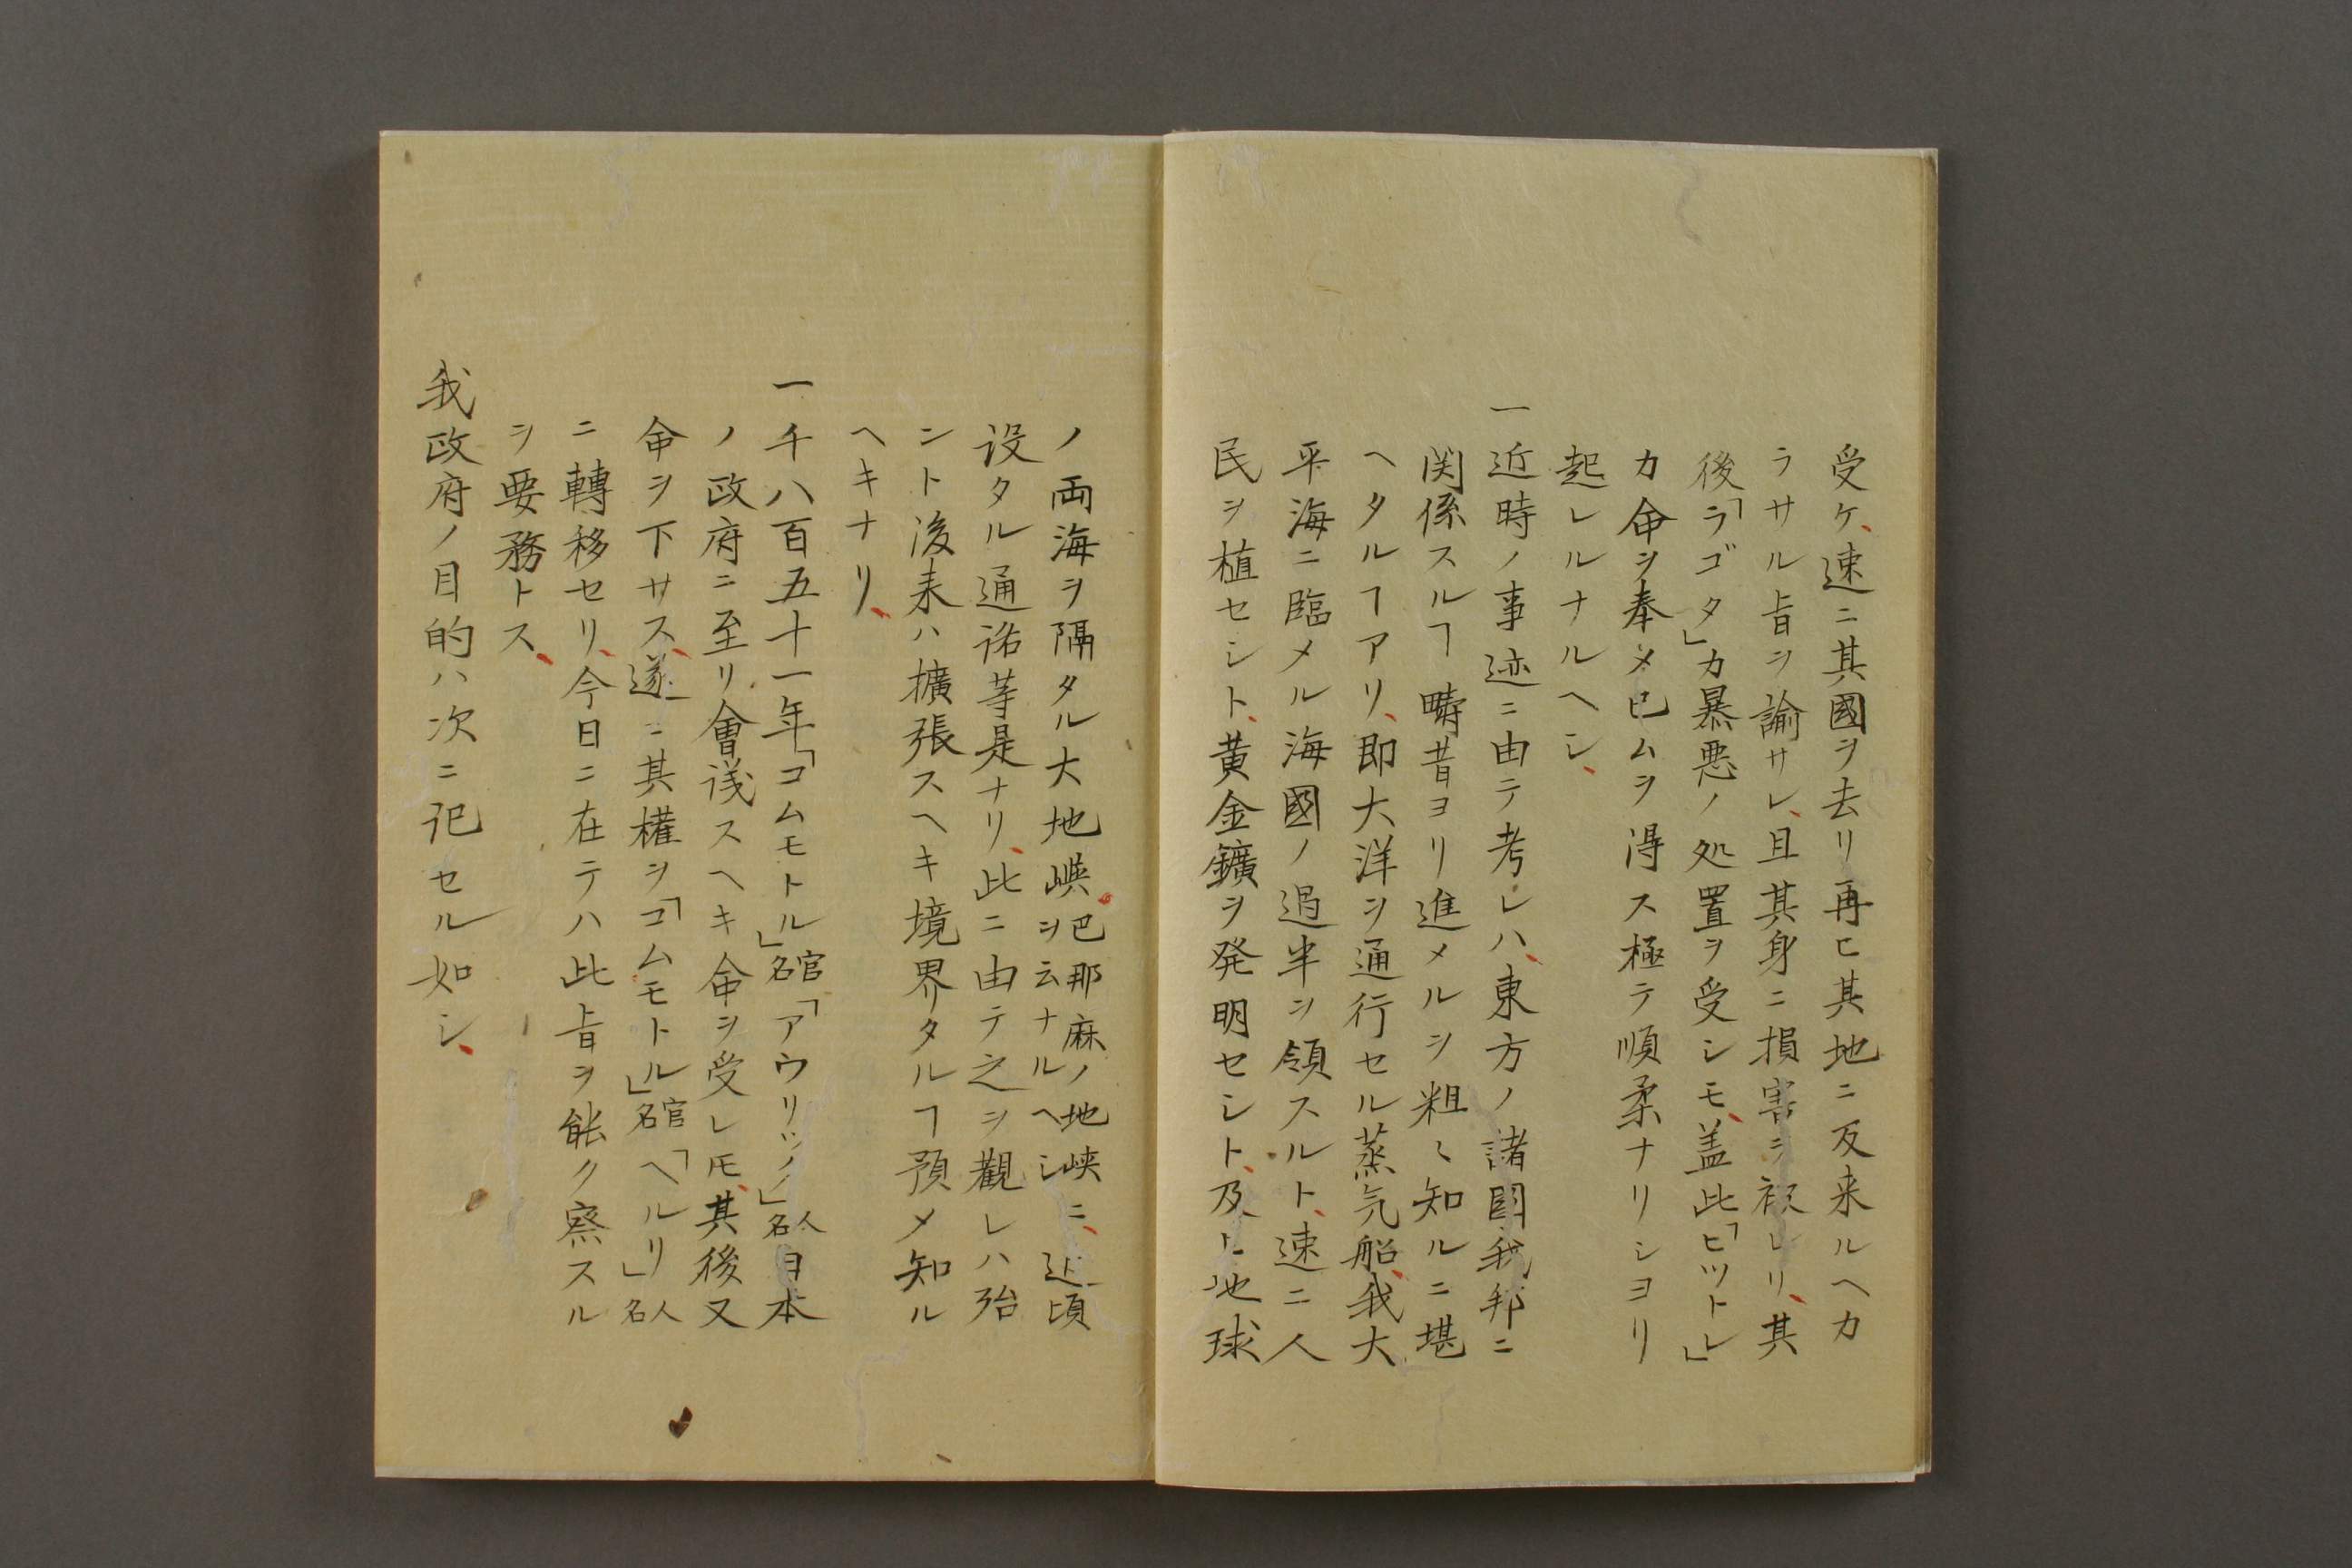 受ケ、速ニ其國ヲ去リ再ヒ其地ニ反来ルヘカ
ラサル旨ヲ諭サレ、且其身ニ損害ヲ被レリ、其
後「ラゴタ」カ暴悪ノ処置ヲ受シモ、盖此「ヒツトレ」
カ命ヲ奉メ已ムヲ得ス極テ順柔ナリシヨリ
起レルナルヘシ、
一近時ノ事迹ニ由テ考レハ、東方ノ諸国我邦ニ
関係スルヿ疇昔ヨリ進メルヲ粗〻知ルニ堪
ヘタルヿアリ、即大洋ヲ通行セル蒸気船、我大
平海ニ臨メル海國ノ過半ヲ領スルト、速ニ人
民ヲ植セシト、黄金鑛ヲ発明セシト、及ヒ地球
ノ両海ヲ隔タル大地峡巴那麻ノ地峡ヲ云ナルヘシニ、近頃
設タル通路等是ナリ、此ニ由テ之ヲ觀レハ殆
ント後来ハ擴張スヘキ境界タルヿ預メ知ル
ヘキナリ、
一千八百五十一年「コムモトル」官名「アウリツノ」人名日本
ノ政府ニ至リ會議スヘキ命ヲ受レ𪜈、其後又
命ヲ下サス、遂ニ其權ヲ「コムモトル」官名「ヘルリ」人名
ニ轉移セリ、今日ニ在テハ此旨ヲ能ク察スル
ヲ要務トス、
我政府ノ目的ハ次ニ記セル如シ、